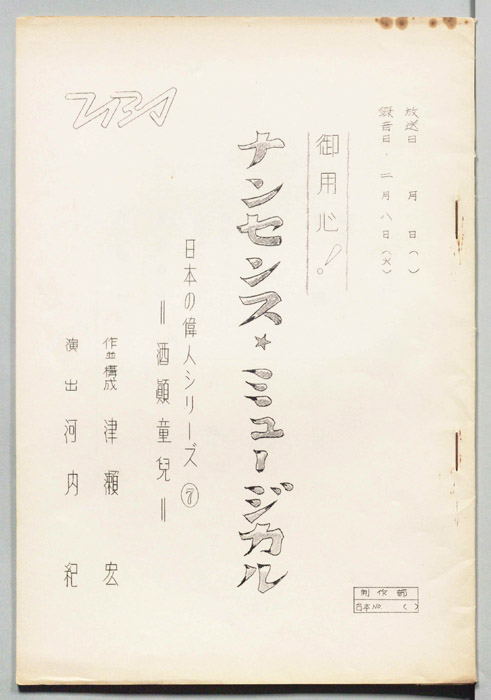 放送日　月　日（　）
録音日・二月八日（火）
御用心！
ナンセンス★ミュージカル
日本の偉人シリーズ⑦
＝酒顚童兒＝
作並構成　津瀬　宏
演出　河内　紀
制作部
台本NO.　（　）